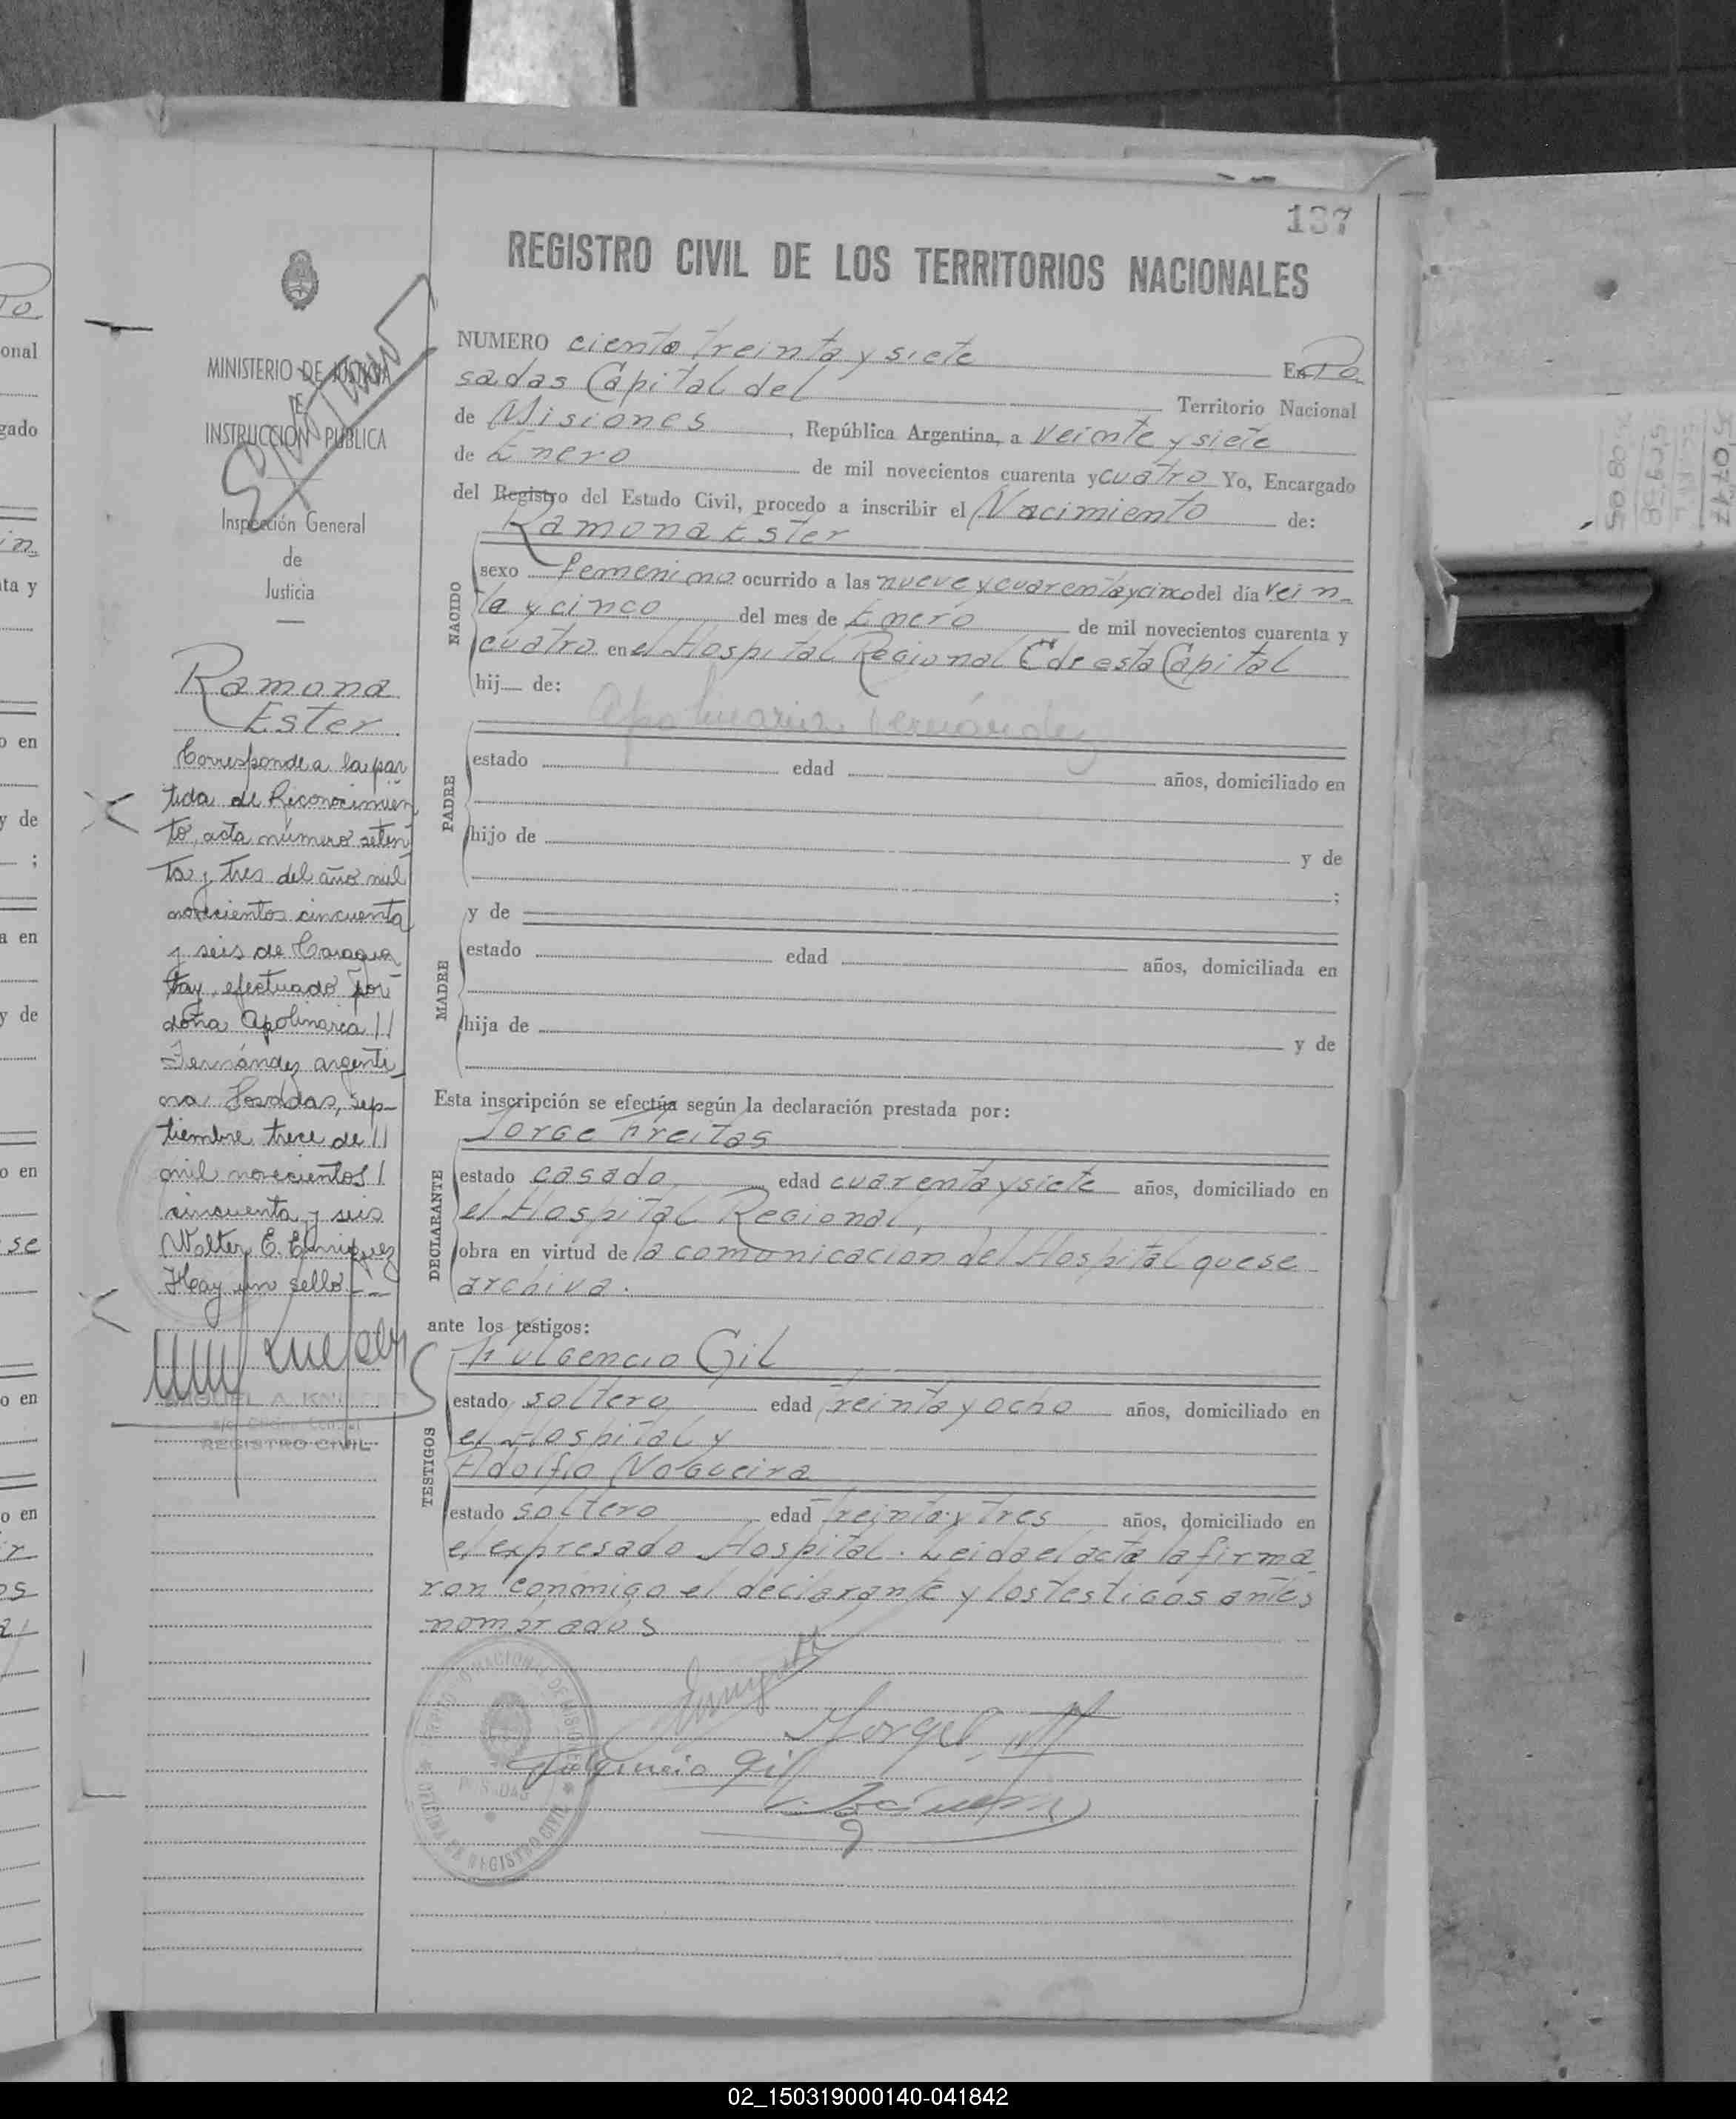 137
REGISTRO CIVIL DE LOS TERRITORIOS NACIONALES
MINISTERIO DE JUSTICIA
E
INSTRUCCION PUBLICA
Inspección General
de
Justicia
Ramona
Ester
Corresponde a la par
tida de Reconocimien
to, acta número seten
ta y tres del año mil
novecientos cincuenta
y seis de Caragua
tay, efectuado por
doña Apolinaria //
Fernández argenti
na Posadas, sep-
tiembre trece de //
mil novecientos /
cincuenta y seis
Walter E. Enriquez
Hay un sello
MIGUEL A.
REGISTRO CIVIL
NUMERO ciento treinta y siete En Po
sadas Capital del Territorio Nacional
de Misiones, República Argentina, a veinte y siete
de Enero de mil novecientos cuarenta y cuatro Yo, Encargado
del Registro del Estado Civil, procedo a inscribir el Nacimiento de:
Ramona Ester
NACIDO
sexo femenino ocurrido a las nueve y cuarenta y cinco del día vein-
te y cinco del mes de Enero de mil novecientos cuarenta y
cuatro en el Hospital Regional de esta Capital
hij de:
Apolinaria Fernández
PADRE
estado edad años, domiciliado en
hijo de y de
;
y de
MADRE
estado edad años, domiciliada en
hija de y de
Esta inscripción se efectúa según la declaración prestada por:
Jorge Freitas
DECLARANTE
estado casado edad cuarenta y siete años, domiciliado en
el Hospital Regional,
obra en virtud de la comunicación del Hospital que se
archiva.
ante los testigos:
Fulgencio Gil
TESTIGOS
estado soltero edad treinta y ocho años, domiciliado en
el Hospital y
Adolfo Nogueira
estado soltero edad treinta y tres años, domiciliado en
el expresado Hospital. Leida el acta la firma
ron conmigo el declarante y los testigos antes
nombrados
Fulgencio Gil
POSADAS
OFICINA DE REGISTRO CIVIL
02_150319000140-041842